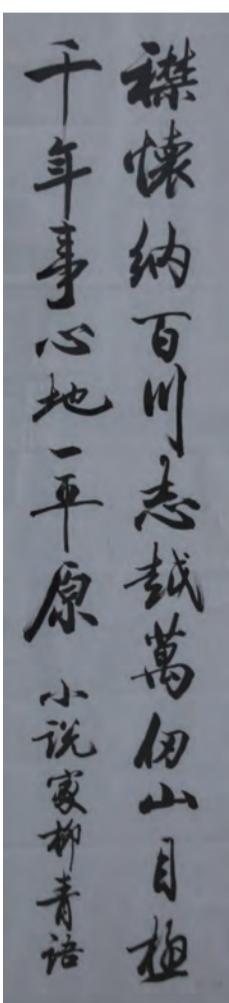 襟懷纳百川志越萬仞山目極
千年事心地一平原 小说家柳青语